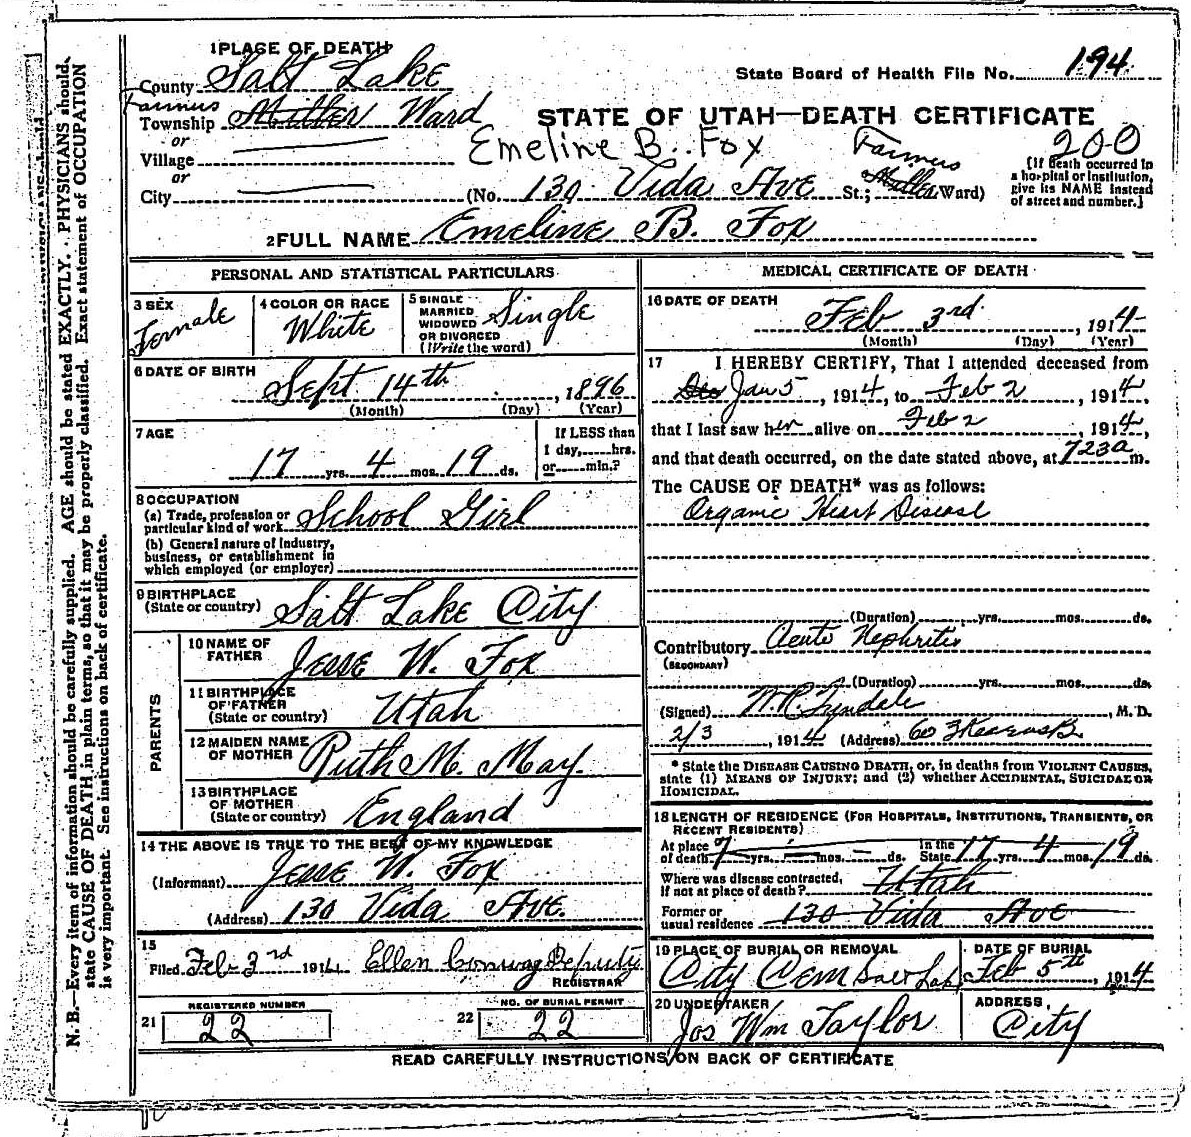 1 PLACE OF DEATH
County Salt Lake
State Board of Health File No. 194
Farmers
Township Miller Ward
STATE OF UTAH—DEATH CERTIFICATE
or
Village
Emeline B. Fox
Farmers
200
or
City
(No. 130 Vida Ave St.; Miller Ward)
(If death occurred in a hospital or institution, give its NAME instead of street and number.)
2 FULL NAME Emeline B. Fox
PERSONAL AND STATISTICAL PARTICULARS
3 SEX Female
4 COLOR OR RACE White
5 SINGLE MARRIED WIDOWED OR DIVORCED (Write the word) Single
6 DATE OF BIRTH
Sept 14th, 1896
(Month) (Day) (Year)
7 AGE
17 yrs. 4 mos. 19 ds.
If LESS than 1 day, hrs. or min.?
8 OCCUPATION
(a) Trade, profession or particular kind of work School Girl
(b) General nature of Industry, business, or establishment in which employed (or employer)
9 BIRTHPLACE
(State or country) Salt Lake City
PARENTS
10 NAME OF FATHER Jesse W. Fox
11 BIRTHPLACE OF FATHER (State or country) Utah
12 MAIDEN NAME OF MOTHER Ruth M. May.
13 BIRTHPLACE OF MOTHER (State or country) England
14 THE ABOVE IS TRUE TO THE BEST OF MY KNOWLEDGE
(Informant) Jesse W. Fox
(Address) 130 Vida Ave.
15
Filed Feb 3rd 1914 Ellen Conway Deputy
REGISTRAR
REGISTERED NUMBER
21 22
NO. OF BURIAL PERMIT
22 22
MEDICAL CERTIFICATE OF DEATH
16 DATE OF DEATH
Feb 3rd, 1914
(Month) (Day) (Year)
17 I HEREBY CERTIFY, That I attended deceased from
Jan 5, 1914, to Feb 2, 1914,
that I last saw her alive on Feb 2, 1914,
and that death occurred, on the date stated above, at 723a m.
The CAUSE OF DEATH* was as follows:
Organic Heart Disease
(Duration) yrs. mos. ds.
Contributory Acute Nephritis
(SECONDARY)
(Duration) yrs. mos. ds.
(Signed) Tyndale, M. D.
2/3, 1914 (Address)
* State the DISEASE CAUSING DEATH, or, in deaths from VIOLENT CAUSES,
state (1) MEANS OF INJURY; and (2) whether ACCIDENTAL, SUICIDAL OR
HOMICIDAL.
18 LENGTH OF RESIDENCE (FOR HOSPITALS, INSTITUTIONS, TRANSIENTS, OR RECENT RESIDENTS)
At place of death 7 yrs. mos. ds. In the State 17 yrs. 4 mos. 19 ds.
Where was disease contracted, if not at place of death? Utah
Former or usual residence 130 Vida Ave
19 PLACE OF BURIAL OR REMOVAL
City Cem Salt Lake
DATE OF BURIAL
Feb 5th, 1914
20 UNDERTAKER
Jos Wm Taylor
ADDRESS
City
READ CAREFULLY INSTRUCTIONS ON BACK OF CERTIFICATE
N. B.—Every item of information should be carefully supplied. AGE should be stated EXACTLY. PHYSICIANS should
state CAUSE OF DEATH in plain terms, so that it may be properly classified. Exact statement of OCCUPATION
is very important. See instructions on back of certificate.